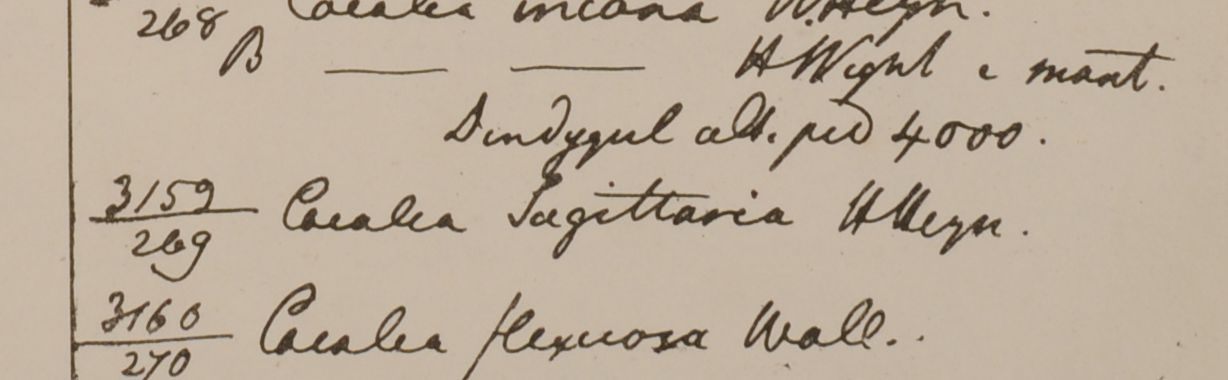 268 Cacalia incana H.Heyn.
B — — H Wight e mont.
Dindygul alt. ped 4000.
3159 Cacalia Sagittaria H Heyn.
269
3160 Cacalia flexuosa Wall.
270